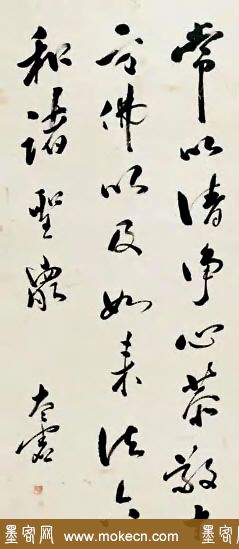 常以清净心恭敬
佛以及如来法
和諸聖眾
太虛
墨客网 www.mokecn.com 墨客网